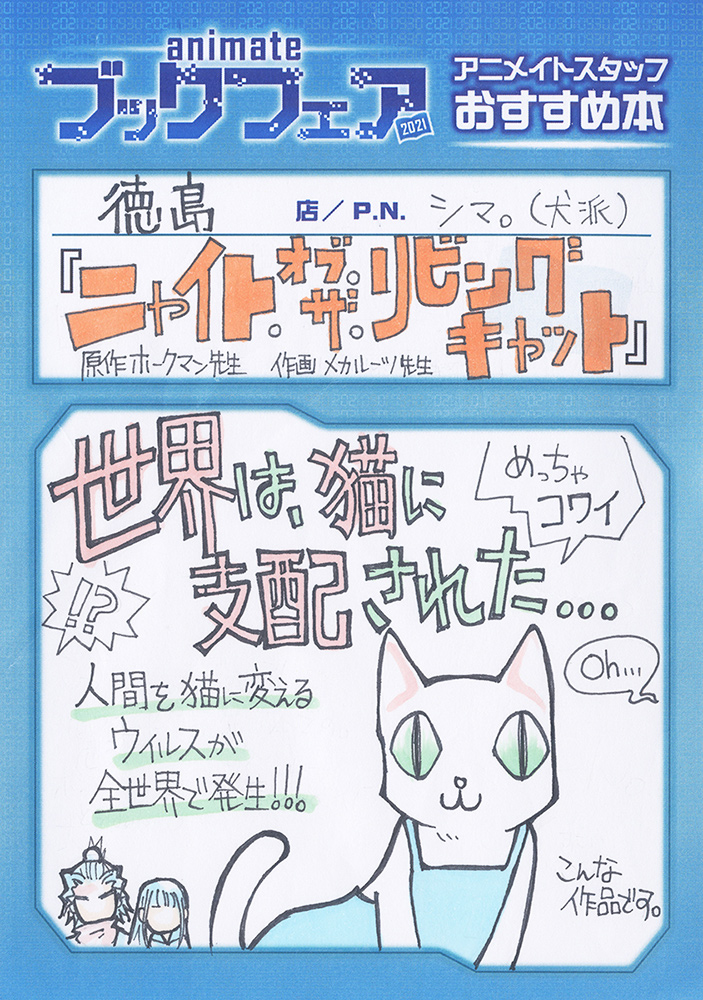 animate
ブックフェア
2021
アニメイトスタッフ
おすすめ本
徳島 店／P.N. シマ。(犬派)
『ニャイト・オブ・ザ・リビング
キャット』
原作ホークマン先生 作画メカルーツ先生
世界は、猫に
支配された...
めっちゃ
コワイ
!?
Oh...
人間を猫に変える
ウイルスが
全世界で発生!!!
こんな
作品です。